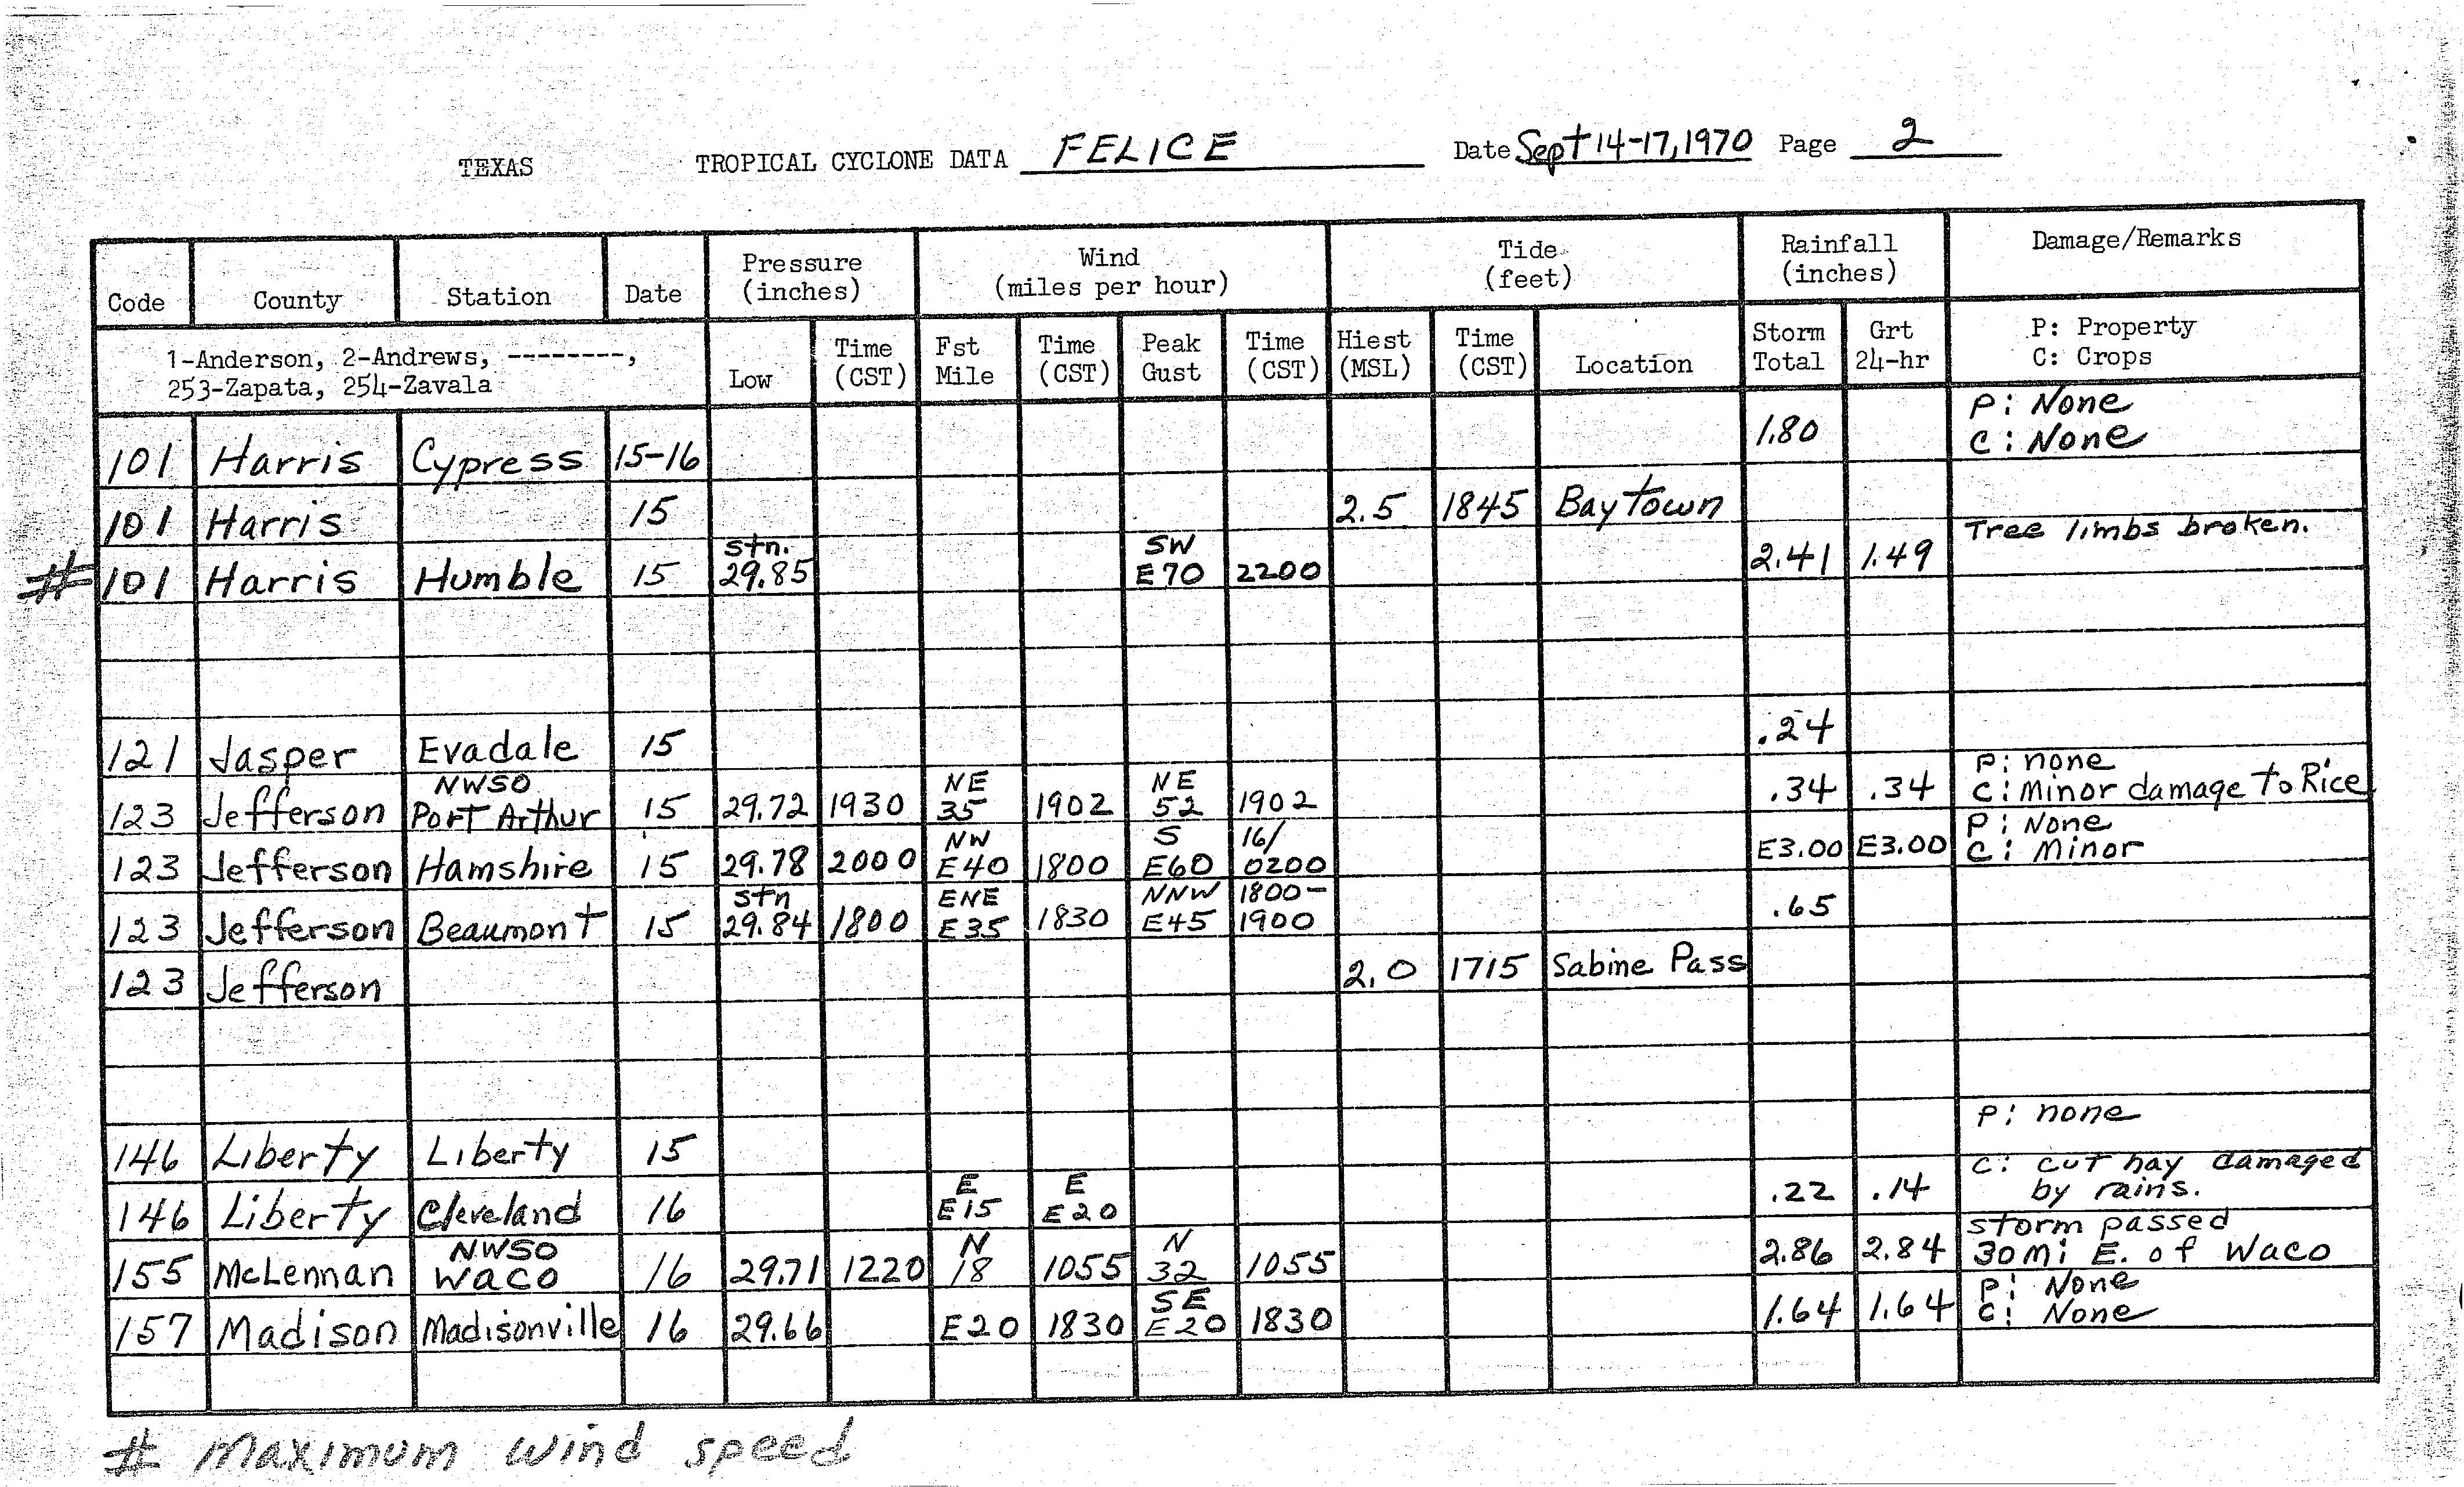 TEXAS TROPICAL CYCLONE DATA FELICE Date Sept 14-17, 1970 Page 2
Code County Station Date Pressure (inches) Wind (miles per hour) Tide (feet) Rainfall (inches) Damage/Remarks
1-Anderson, 2-Andrews, --------,
253-Zapata, 254-Zavala
Low Time (CST) Fst Mile Time (CST) Peak Gust Time (CST) Hiest (MSL) Time (CST) Location Storm Total Grt 24-hr P: Property C: Crops
101 Harris Cypress 15-16 1.80 P: None C: None
101 Harris 15 2.5 1845 Baytown
# 101 Harris Humble 15 stn. 29.85 SW E70 2200 2.41 1.49 Tree limbs broken.
121 Jasper Evadale 15 .24
123 Jefferson NWSO Port Arthur 15 29.72 1930 NE 35 1902 NE 52 1902 .34 .34 P: none C: Minor damage to Rice
123 Jefferson Hamshire 15 29.78 2000 NW E40 1800 S E60 16/ 0200 E3.00 E3.00 P: None C: Minor
123 Jefferson Beaumont 15 stn 29.84 1800 ENE E35 1830 NNW E45 1800- 1900 .65
123 Jefferson 2.0 1715 Sabine Pass
146 Liberty Liberty 15 P: none
146 Liberty Cleveland 16 E E15 E E20 .22 .14 C: cut hay damaged by rains.
155 McLennan NWSO Waco 16 29.71 1220 N 18 1055 N 32 1055 2.86 2.84 storm passed 30 mi E. of Waco
157 Madison Madisonville 16 29.66 E20 1830 SE E20 1830 1.64 1.64 P: None C: None
# Maximum wind speed